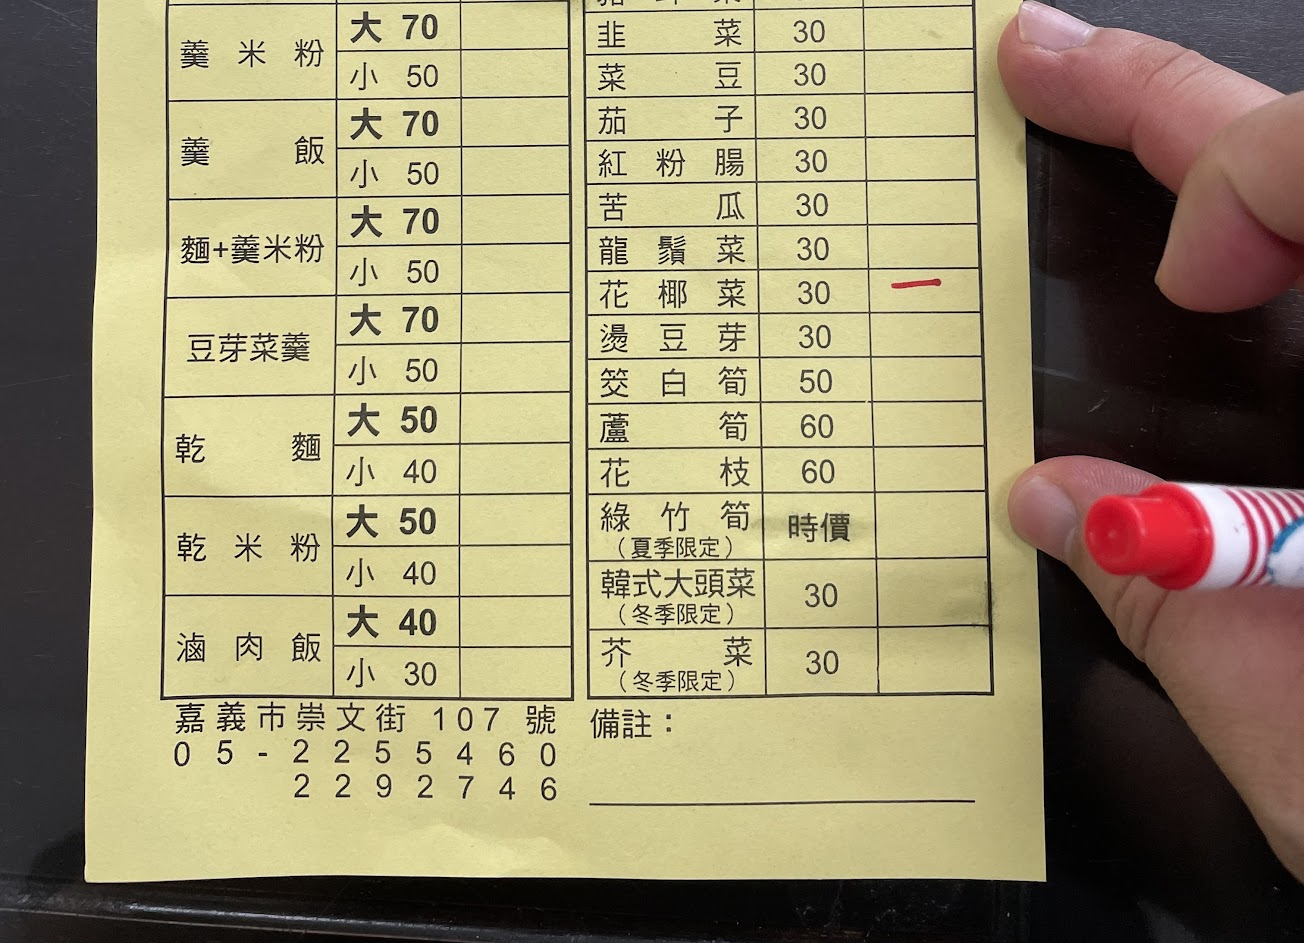 羹米粉 大 70
小 50
羹飯 大 70
小 50
麵+羹米粉 大 70
小 50
豆芽菜羹 大 70
小 50
乾麵 大 50
小 40
乾米粉 大 50
小 40
滷肉飯 大 40
小 30
嘉義市崇文街 107 號
05-2255460
2292746
韭菜 30
菜豆 30
茄子 30
紅粉腸 30
苦瓜 30
龍鬚菜 30
花椰菜 30 一
燙豆芽 30
筊白筍 50
蘆筍 60
花枝 60
綠竹筍 時價
（夏季限定）
韓式大頭菜 30
（冬季限定）
芥菜 30
（冬季限定）
備註：